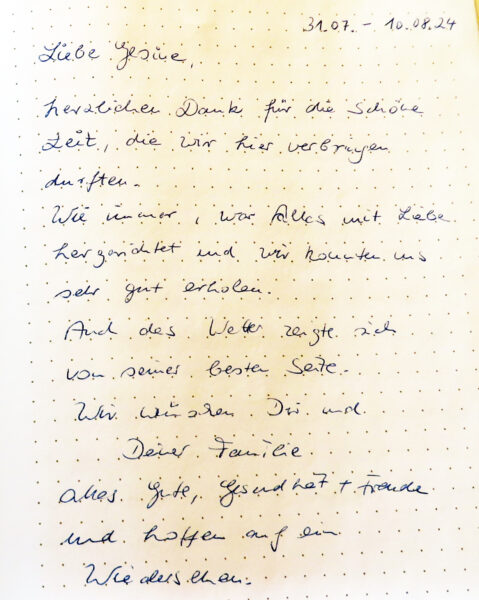 31.07. - 10.08.24
Liebe Gesine,
herzlichen Dank für die schöne
Zeit, die wir hier verbringen
durften.
Wie immer, war Alles mit Liebe
hergerichtet und wir konnten uns
sehr gut erholen.
Auch das Wetter zeigte sich
von seiner besten Seite.
Wir wünschen Dir und
Deiner Familie
alles Gute, Gesundheit + Freude
und hoffen auf ein
Wiedersehen.